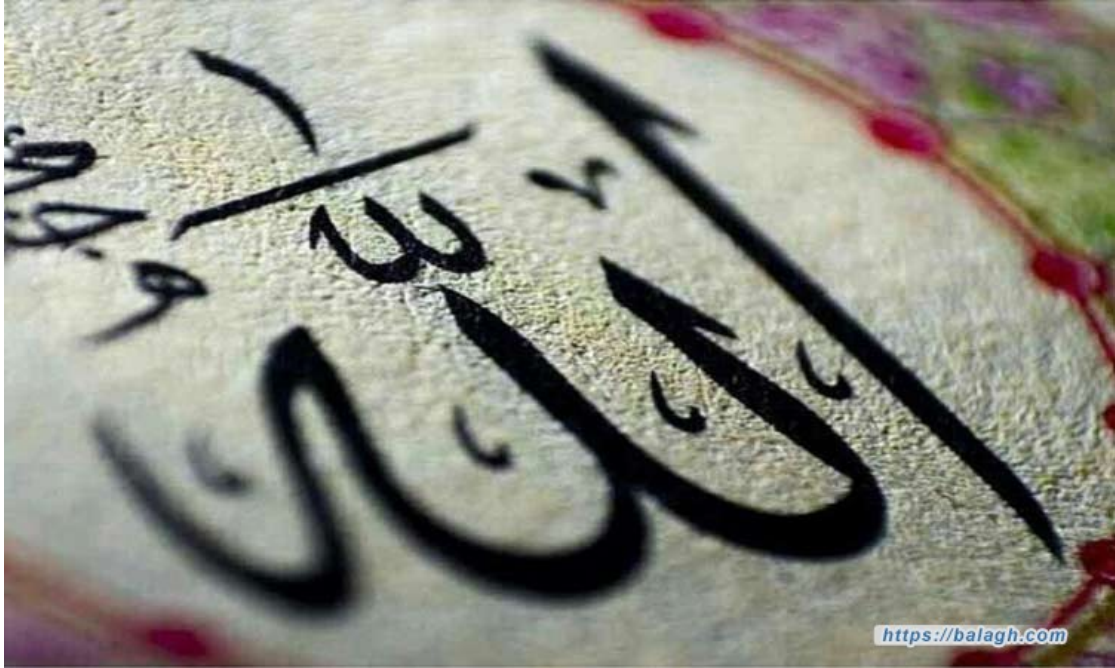 الله
https://balagh.com